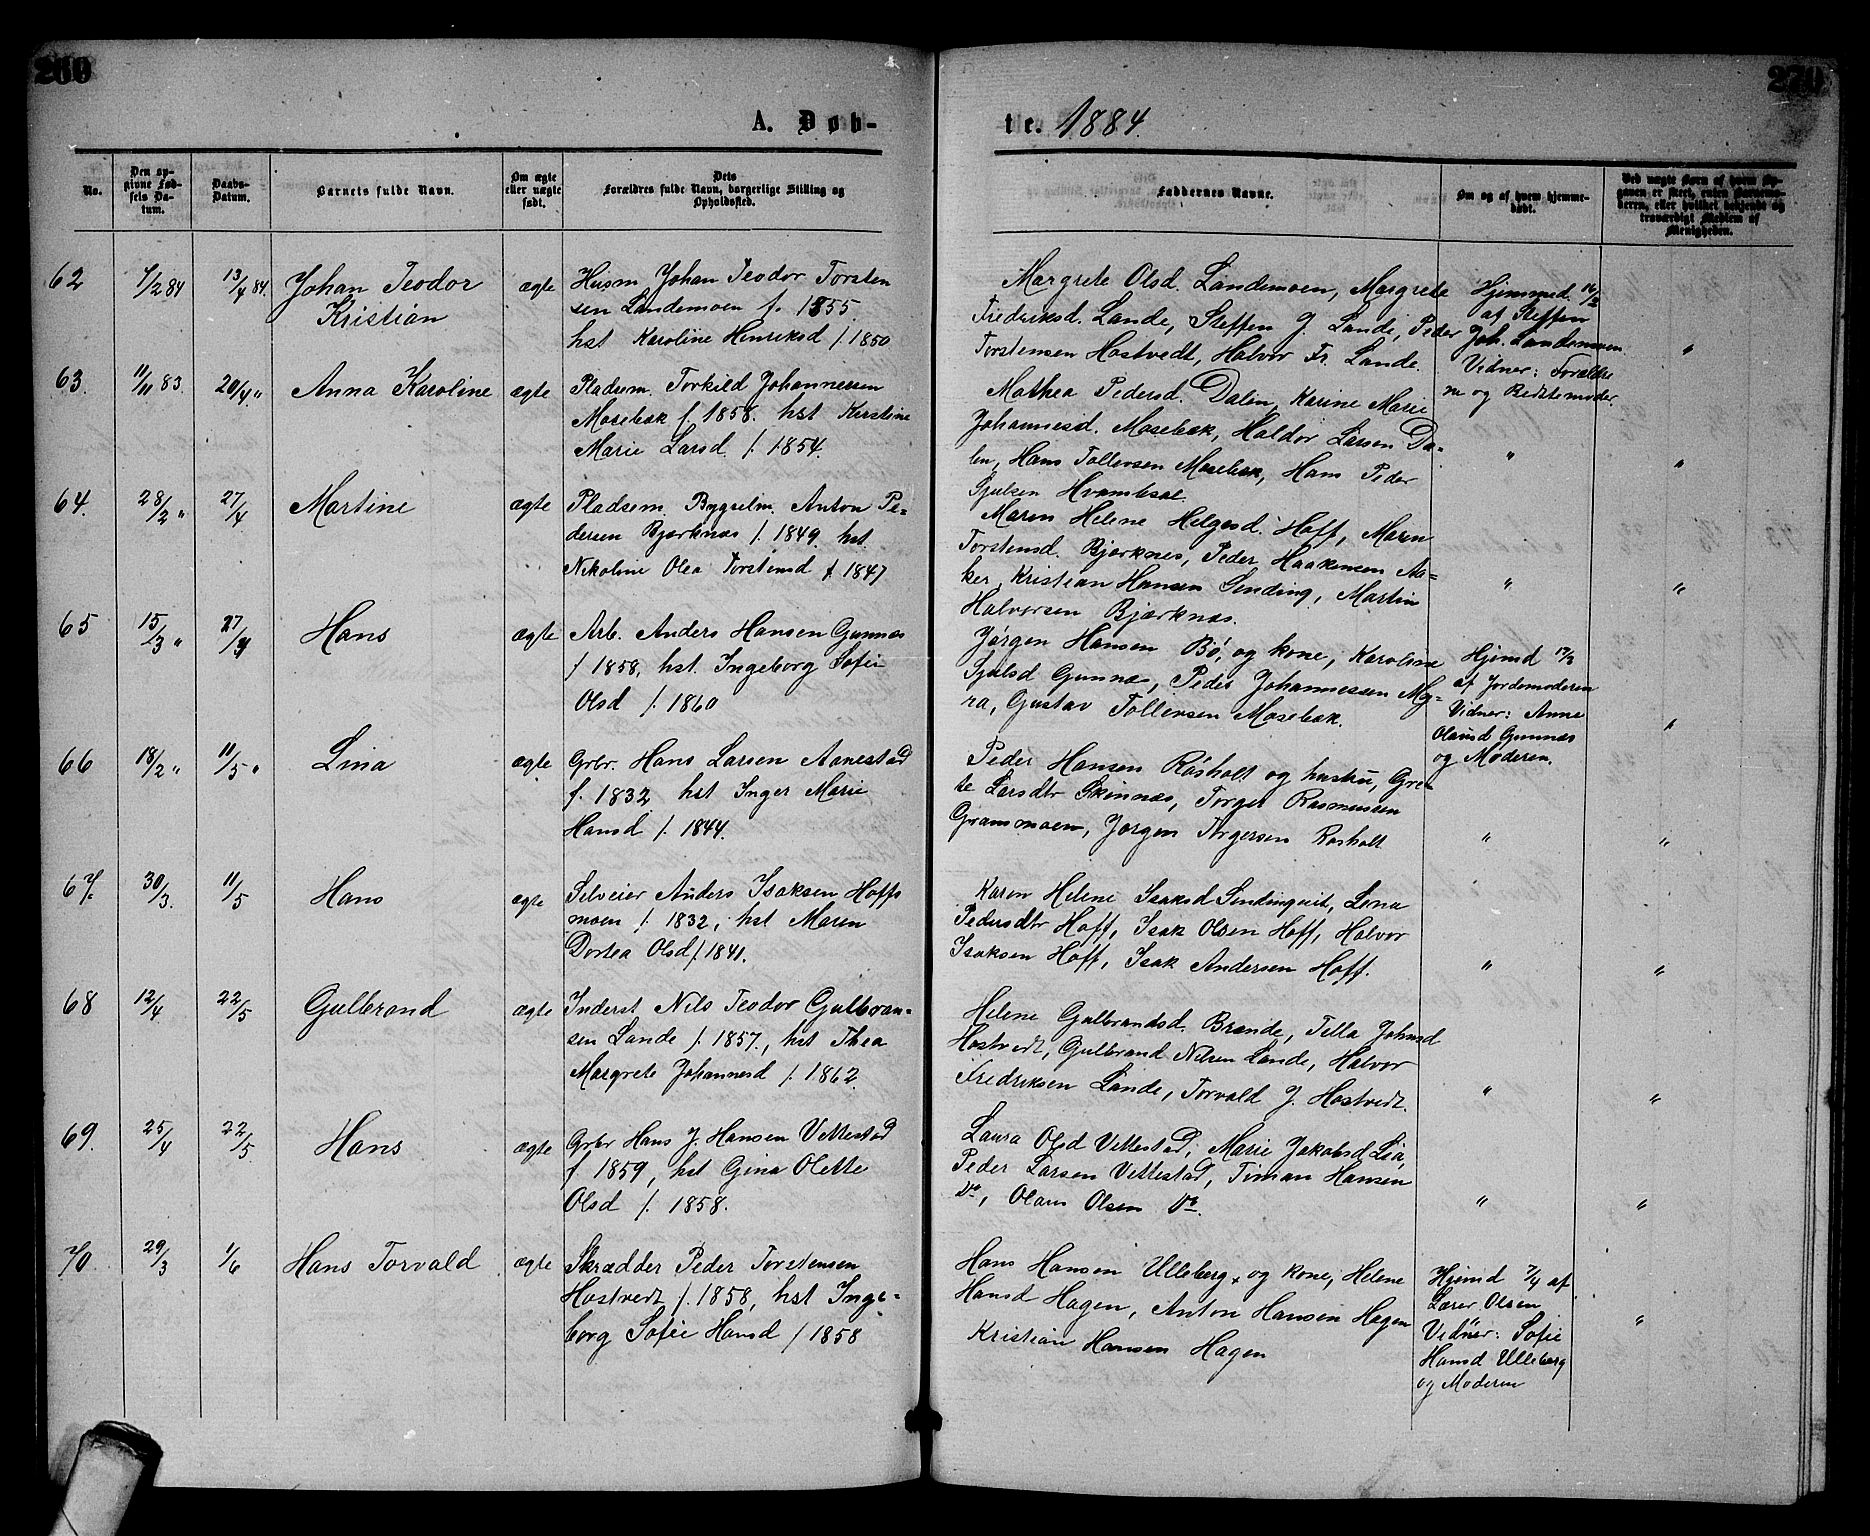 270
A. Døb-
te. 1884.
No.
Den op-
givne Fød-
sels Da-
tum.
Daabs-
Datum.
Barnets fulde Navn.
Om ægte
eller uægte
født.
Dets
Forældres fulde Navn, borgerlige Stilling og
Opholdssted.
Faddernes Navne.
Om og af hvem hjemme-
døbt.
Ved uægte Børn af hvem Op-
gaven er skeet, enten Barnemo-
deren, eller hvilket bekjendt og
troværdigt Medlem af
Menigheden.
62
7/2 84
13/4 84.
Johan Teodor
Kristian
ægte
Husm Johan Teodor Torsten
sen Landemoen f. 1855.
hst Karoline Henriksd f. 1850
Margrete Olsd. Landemoen, Margrete
Fredriksd. Lande, Steffen J. Lande, Peder
Torstensen Hostvedt, Halvor Fr. Lande.
Hjemmed. 16/2
af Steffen
Joh. Landemoen.
Vidner: Foreldre
ne og Bedstemoder.
"
63.
11/11 83.
20/4 "
Anna Karoline
ægte
Pladsm. Torkild Johannessen
Mosebæk f. 1858. hst Kirstine
Marie Larsd. f. 1854.
Mathea Pedersd. Dalen, Karine Marie
Johannesd. Mosebæk, Haldor Larsen Da-
len, Hans Tollevsen Mosebæk, Hans Peder
Sjulsen Hvambsal.
"
"
64.
28/2 "
27/4
Martine
ægte
Pladsem. Bygselm. Anton Pe-
dersen Bjørknes f. 1849. hst.
Nikoline Olea Torstensd f. 1847
Maren Helene Helgesd. Hoff, Maren
Torstensd. Bjørknes, Peder Haakensen Aa-
ker, Kristian Hansen Sending, Martin
Halvorsen Bjørknes.
"
"
65
15/3 "
27/4
Hans
ægte
Arb. Anders Hansen Gunnes
f 1858, hst. Ingeborg Sofie
Olsd f. 1860
Jørgen Hansen Bø, og kone, Karoline
Sjulsd Gunnes, Peder Johannessen My-
ra, Gustav Tollevsen Mosebæk.
Hjemd 17/3
af Jordemoderen
Vidner: Anne
Olausd Gunnes
og Moderen.
"
66
18/2 "
11/5 "
Lina
ægte
Grbr. Hans Larsen Aanestad
f. 1832 hst Inger Marie
Hansd f. 1844.
Peder Hansen Røsholt og hustru, Gre-
te Larsdtr Skinnes, Torger Rasmussen
Gransmoen, Jørgen Torgersen Røsholt
"
"
67.
30/3.
11/5
Hans
ægte
Selveier Anders Isaksen Hoffs
moen f. 1832, hst Maren
Dortea Olsd f. 1841.
Karen Helene Isaksd Sendingeiet, Lena
Pedersdtr Hoff, Isak Olsen Hoff, Halvor
Isaksen Hoff, Isak Andersen Hoff.
"
"
68
12/4
22/5
Gulbrand
ægte
Inderst Nils Teodor Gulbran-
sen Lande f. 1857., hst Thea
Margrete Johannesd f. 1862.
Helene Gulbrandsd. Brænde, Tella Johnsd
Hostvedt, Gulbrand Nilsen Lande, Halvor
Fredriksen Lande, Torvald J. Hostvedt.
"
"
69.
25/4
22/5
Hans
ægte
Grbr Hans J. Hansen Vettestad
f 1859, hst Gina Olette
Olsd f. 1858.
Laura Olsd Vettestad, Marie Jakobsd Lia,
Peder Larsen Vettestad, Timan Hansen
Do, Olaus Olsen Do.
"
"
70.
29/3
1/6
Hans Torvald
ægte
Skrædder Peder Torstensen
Hostvedt f. 1858, hst Inge-
borg Sofie Hansd f 1858
Hans Hansen Ulleberg og kone, Helene
Hansd Hagen, Anton Hansen Hagen
Kristian Hansen Hagen
Hjemd 7/4 af
Lærer Olsen
Vidner: Sofie
Hansd Ulleberg
og Moderen
"